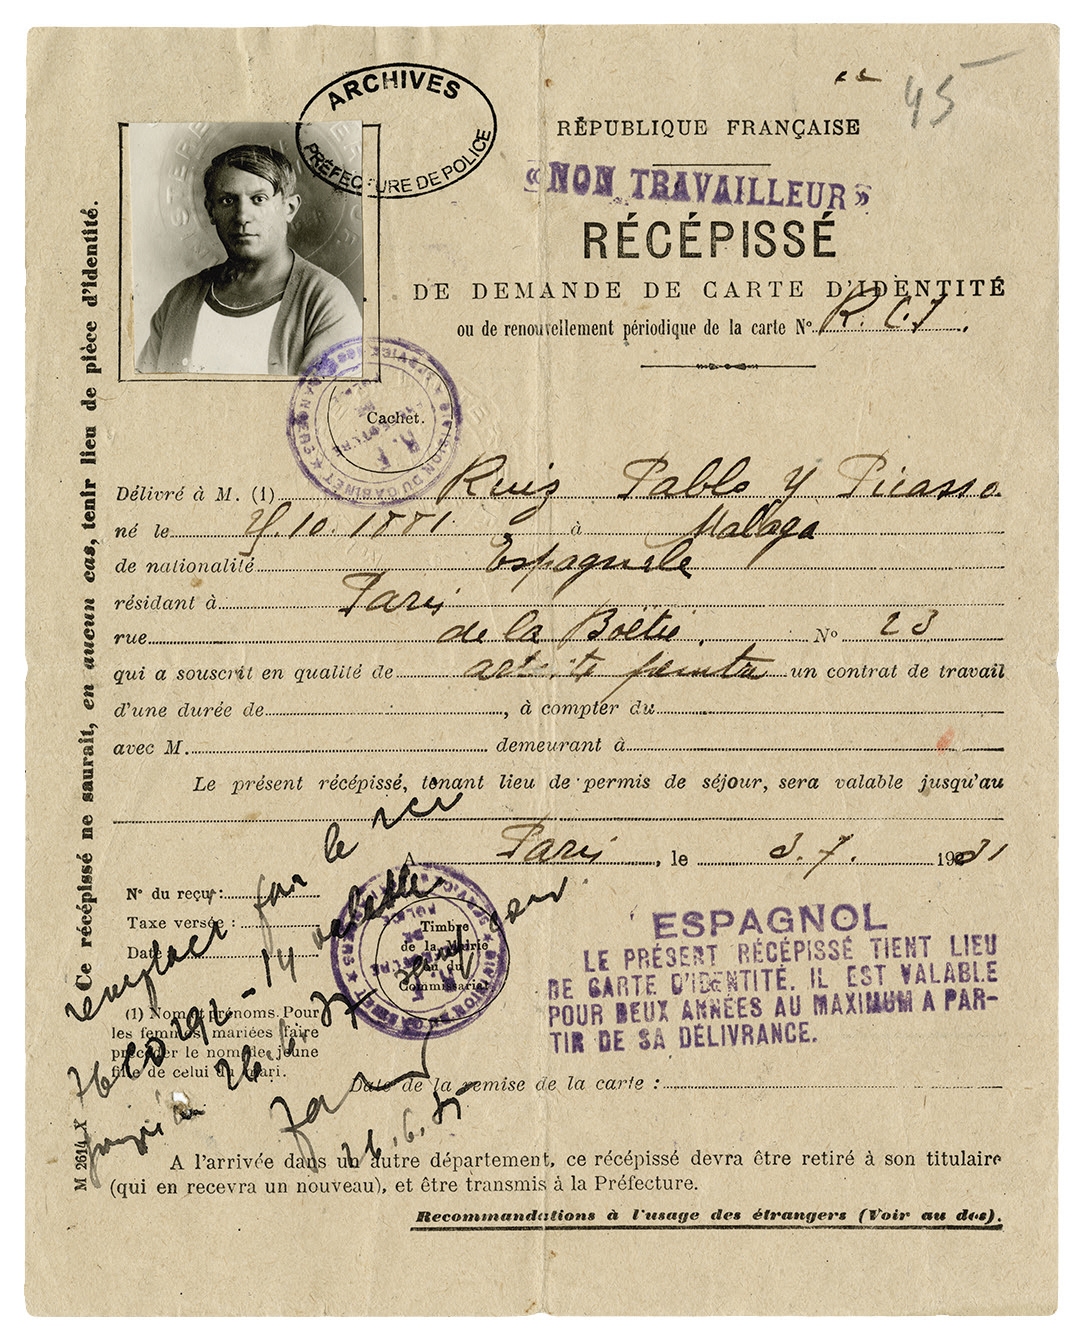 ARCHIVES
PRÉFECTURE DE POLICE
45
RÉPUBLIQUE FRANÇAISE
«NON TRAVAILLEUR»
RÉCÉPISSÉ
DE DEMANDE DE CARTE D'IDENTITÉ
ou de renouvellement périodique de la carte No.
Cachet.
Délivré à M. (1) Ruiz Pablo y Picasso
né le 25.10.1881 à Malaga
de nationalité Espagnole
résidant à Paris
rue de la Boëtie. No 23
qui a souscrit en qualité de artiste peintre un contrat de travail
d'une durée de , à compter du
avec M. demeurant à
Le présent récépissé, tenant lieu de permis de séjour, sera valable jusqu'au
A Paris, le 3.7. 1931
No du reçu :
Taxe versée :
Date
Timbre
de la Mairie
ou du
Commissariat
ESPAGNOL
LE PRÉSENT RÉCÉPISSÉ TIENT LIEU
DE CARTE D'IDENTITÉ. IL EST VALABLE
POUR DEUX ANNÉES AU MAXIMUM A PAR-
TIR DE SA DÉLIVRANCE.
(1) Nom et prénoms. Pour
les femmes mariées faire
précéder le nom de jeune
fille de celui du mari.
remplacé par le rcv
26.6.35
Date de la remise de la carte :
A l'arrivée dans un autre département, ce récépissé devra être retiré à son titulaire
(qui en recevra un nouveau), et être transmis à la Préfecture.
Recommandations à l'usage des étrangers (Voir au dos).
Ce récépissé ne saurait, en aucun cas, tenir lieu de pièce d'identité.
M 2614 X